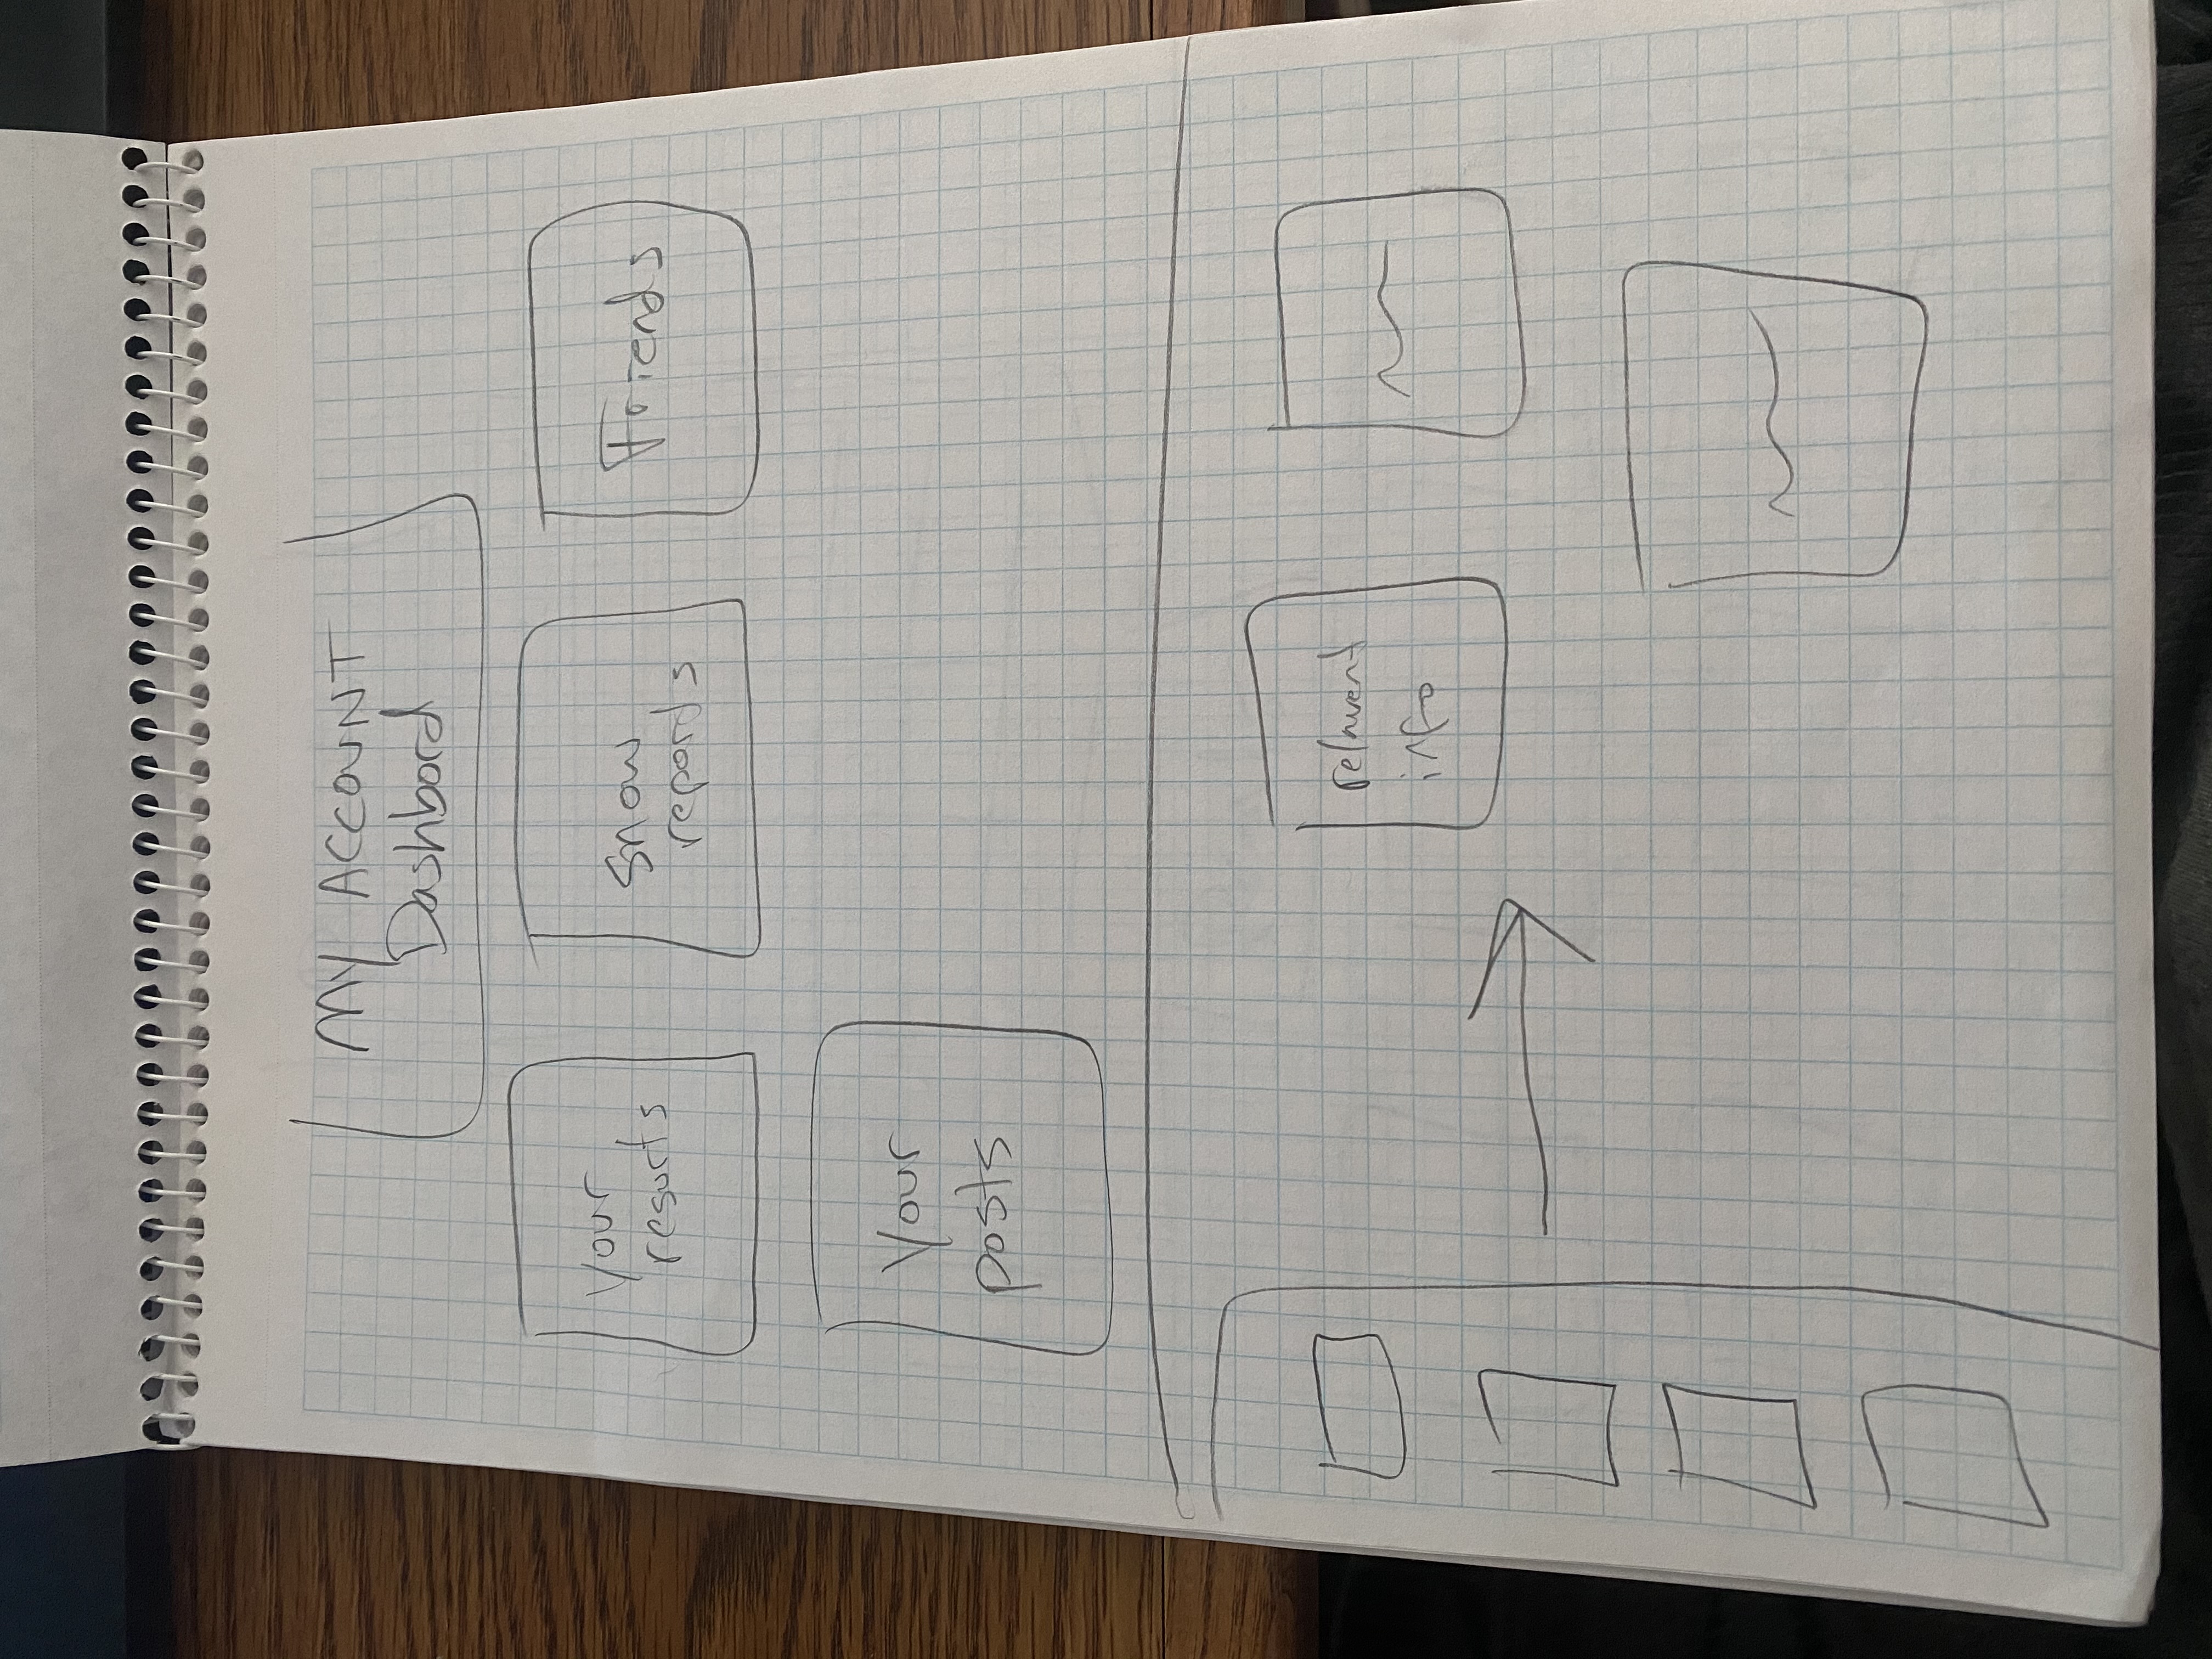 My ACCOUNT
Dashbord
Your
resorts
Snow
reports
Friends
Your
posts
relavent
info